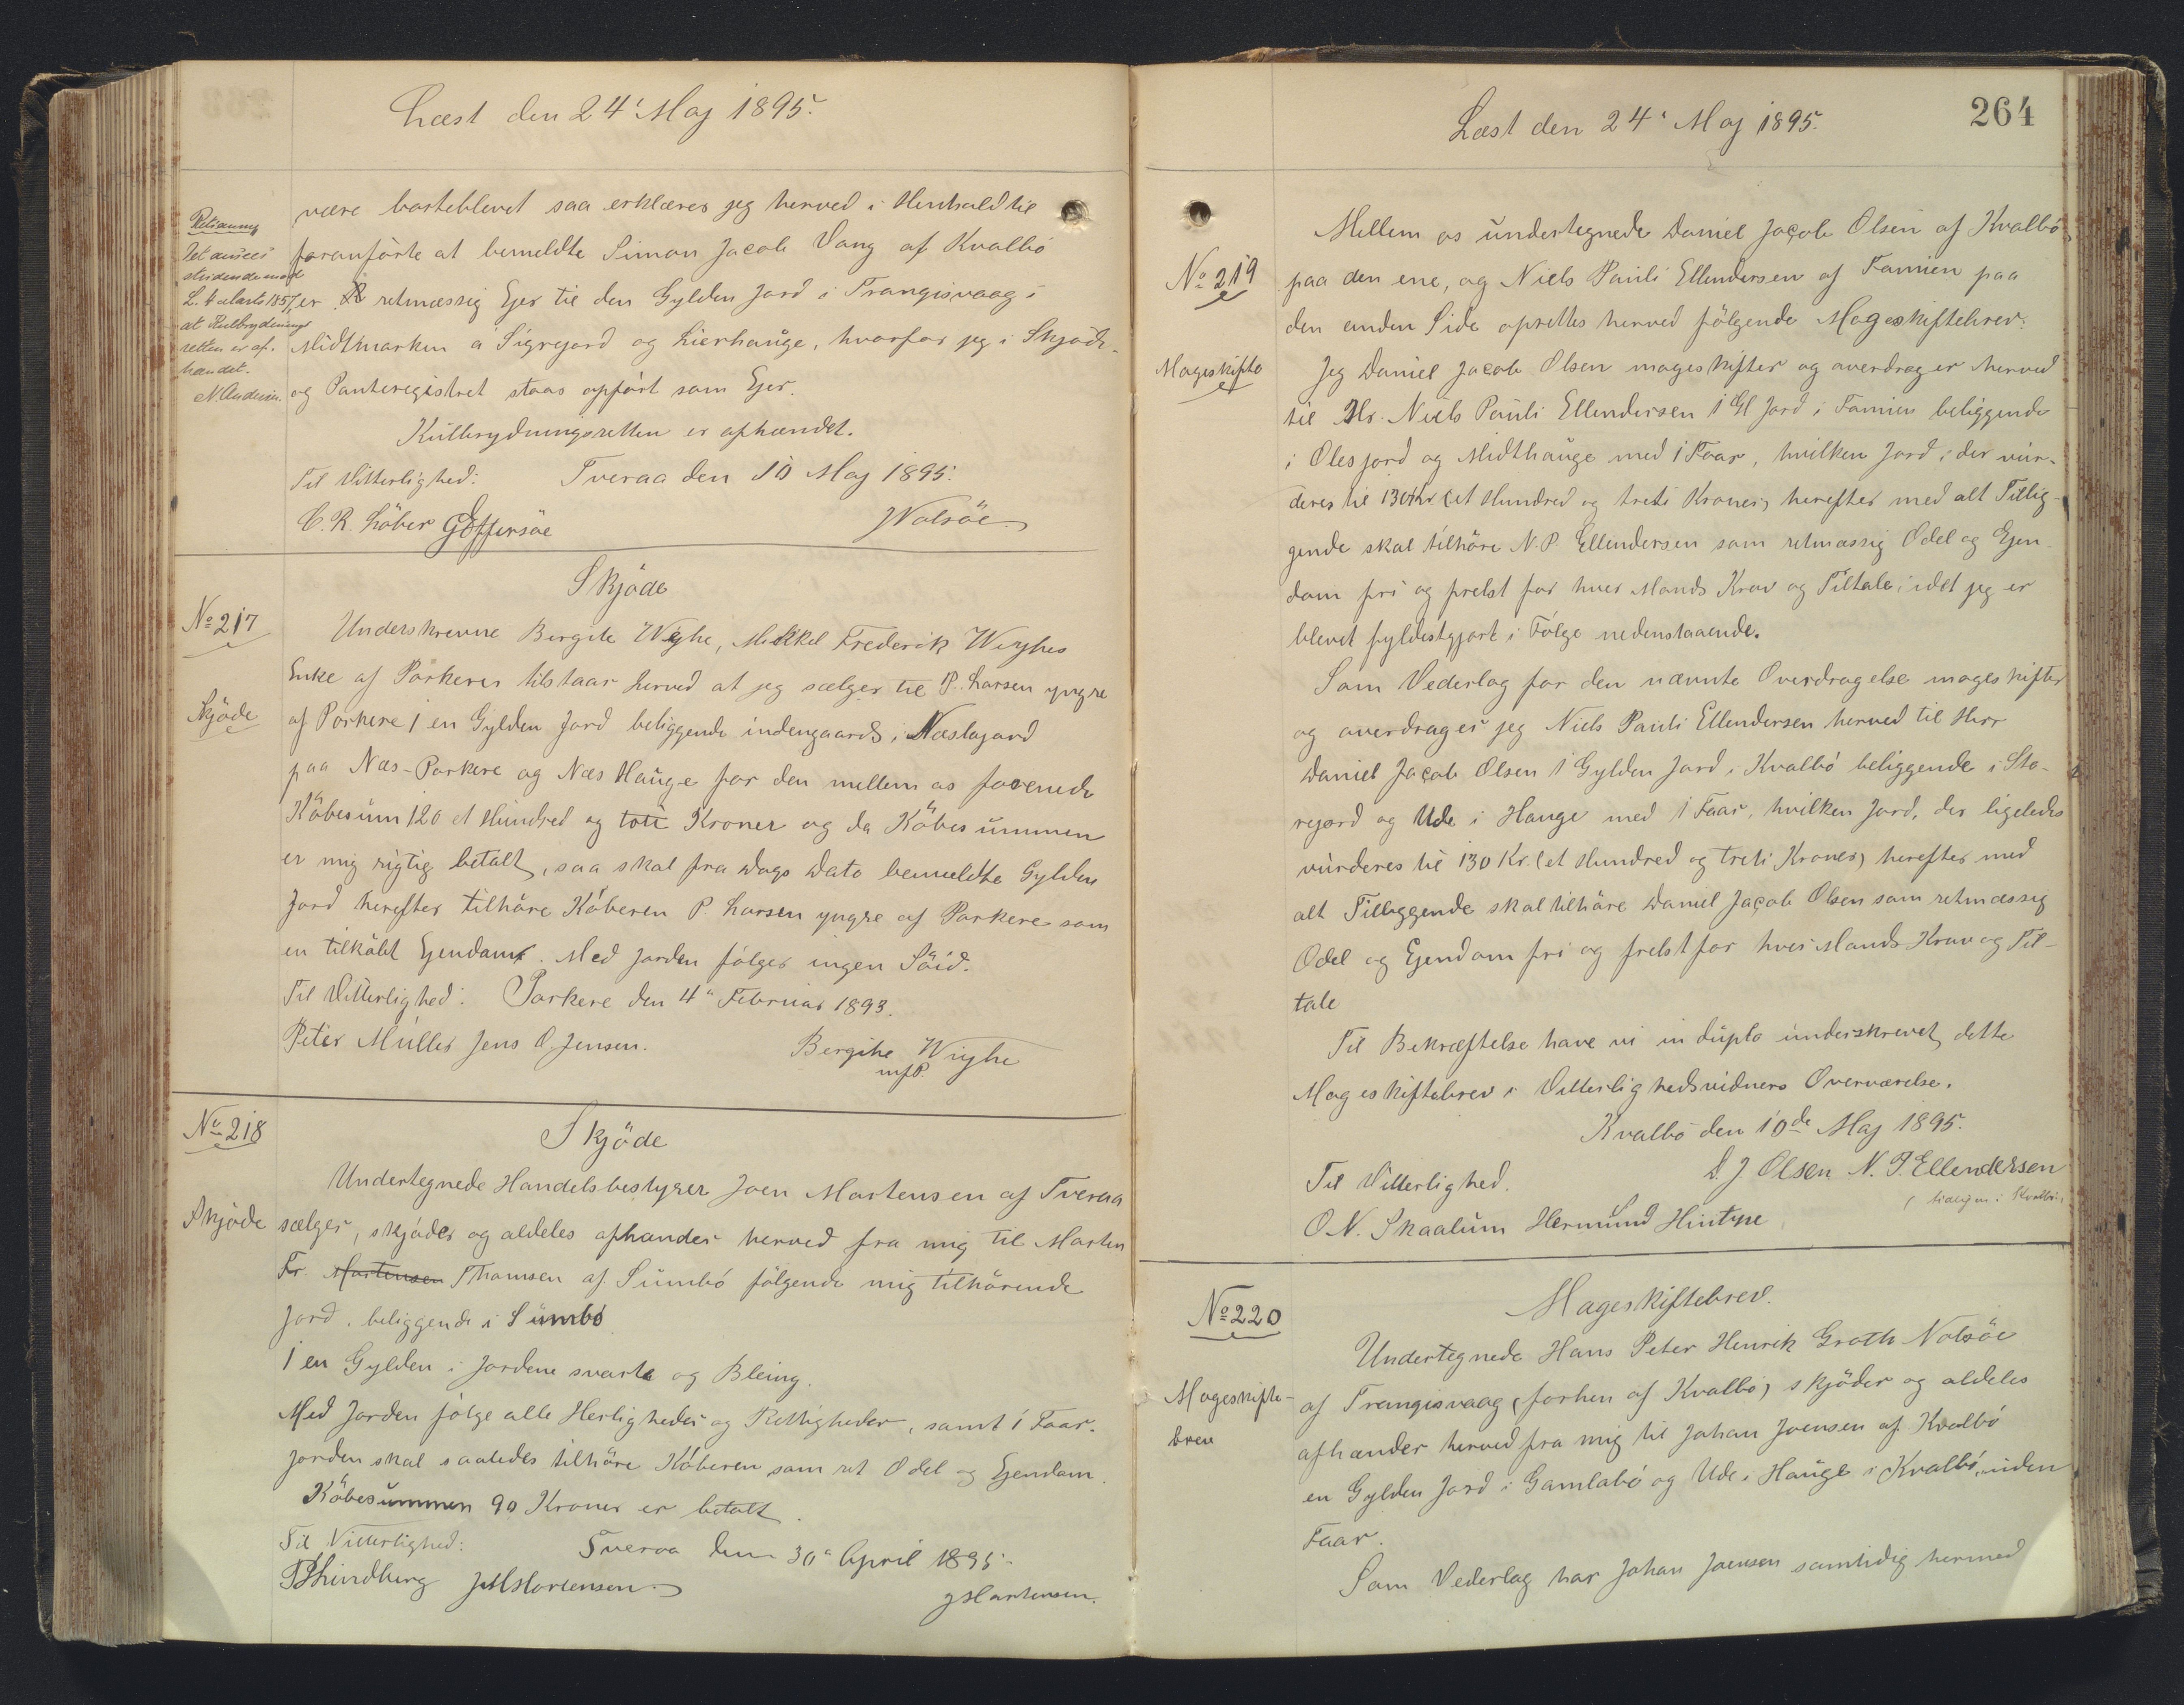 Læst den 24' Maj 1895.
være borteblevet saa erklærer jeg herved i Henhold til
foranførte at bemeldte Simon Jacob Vang af Kvalbö
er retmæssig Ejer til den Gylden Jord i Trangisvaag i
Midtmarken a Sigrejord og Lierhauge, hvorfor jeg i Skjöde-
og Panteregistret staar opfört som Ejer.
Kulbrydningsretten er afhændet.
Til Vitterlighed: Tveraa den 10 Maj 1895.
C. R. Löber Noksöe
Det ansees
stridende mod
L. 1857,
at Kulbrydnings
retten er af-
hændet.
N. Andersen.
Skjöde
No 217
Skjöde
Underskrevne Bergite Weyhe, Mikkel Frederik Weyhes
Enke af Porkeres tilstaar herved at jeg sælger til P. Larsen yngre
af Porkere 1 en Gylden Jord beliggende indengaards i Næstagard
paa Næs-Porkere og Næs Hauge for den mellem os forenede
Köbesum 120 et Hundred og tote Kroner og da Köbesummen
er mig rigtig betalt, saa skal fra Dags Dato bemeldte Gylden
Jord herefter tilhöre Köberen P. Larsen yngre af Porkere som
en tilköbt Ejendom. Med Jorden fölger ingen Söid.
Til Vitterlighed: Porkere den 4' Februar 1893.
Peter Müller Jens O. Jensen. Bergithe Wiyhe
mfP.
No 218
Skjöde
Skjöde
Undertegnede Handelsbestyrer Joen Mortensen af Tveraa
sælger, skjöder og aldeles afhænder herved fra mig til Morten
Fr. Mortensen Thomsen af Sumbö fölgende mig tilhörende
Jord, beliggende i Sumbö
1 en Gylden i Jordene svarta og Bleing.
Med Jorden fölge alle Herligheder og Rettigheder, samt 1 Faar.
Jorden skal saaledes tilhöre Köberen som ret Odel og Ejendom.
Köbesummen 90 Kroner er betalt.
Til Vitterlighed: Tveraa den 30' April 1895.
Lindberg J. Mortensen J Mortensen.
Læst den 24' Maj 1895.
264
No 219
Mageskifte
Mellem os undertegnede Daniel Jacob Olsen af Kvalbö
paa den ene, og Niels Pauli Ellendersen af Famien paa
den anden Side oprettes herved fölgende Mageskiftebrev:
Jeg Daniel Jacob Olsen mageskifter og overdrager herved
til Hr. Niels Pauli Ellendersen 1 Gl Jord i Famien beliggende
i Olesjord og Midthauge med 1 Faar, hvilken Jord, der vur-
deres til 130 Kr (et Hundred og treti Kroner) herefter med alt Tillig-
gende skal tilhöre N. P. Ellendersen som retmæssig Odel og Ejen-
dom fri og frelst for hver Mands Krav og Tiltale, idet jeg er
blevet fyldestgjort i Fölge nedenstaaende.
Som Vederlag for den nævnte Overdragelse mageskifter
og overdrager jeg Niels Pauli Ellendersen herved til Herr
Daniel Jacob Olsen 1 Gylden Jord i Kvalbö beliggende i Sto-
rejord og Ude i Hauge med 1 Faar, hvilken Jord, der ligeledes
vurderes til 130 Kr. (et Hundred og treti Kroner) herefter med
alt Tilliggende skal tilhöre Daniel Jacob Olsen som retmæssig
Odel og Ejendom fri og frelst for hver Mands Krav og Til-
tale
Til Bekræftelse have vi in duplo underskrevet dette
Mageskiftebrev i Vitterlighedsvidners Overværelse.
Kvalbö den 10de Maj 1895.
Til Vitterlighed. D. J. Olsen N. P. Ellendersen
O. N. Skaalum Hermund Hintze
No 220
Mageskifte-
brev
Mageskiftebrev.
Undertegnede Hans Peter Henrik Groth Nolsöe
af Trangisvaag (forhen af Kvalbö) skjöder og aldeles
afhænder herved fra mig til Johan Joensen af Kvalbö
en Gylden Jord i Gamlabö og Ude i Hauge i Kvalbö, uden
Faar.
Som Vederlag har Johan Joensen samtidig hermed